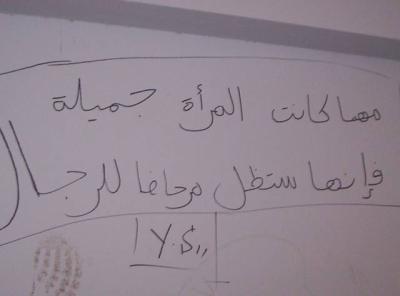 مهما كانت المرأة جميلة
فإنها ستظل مرحاضا للرجال